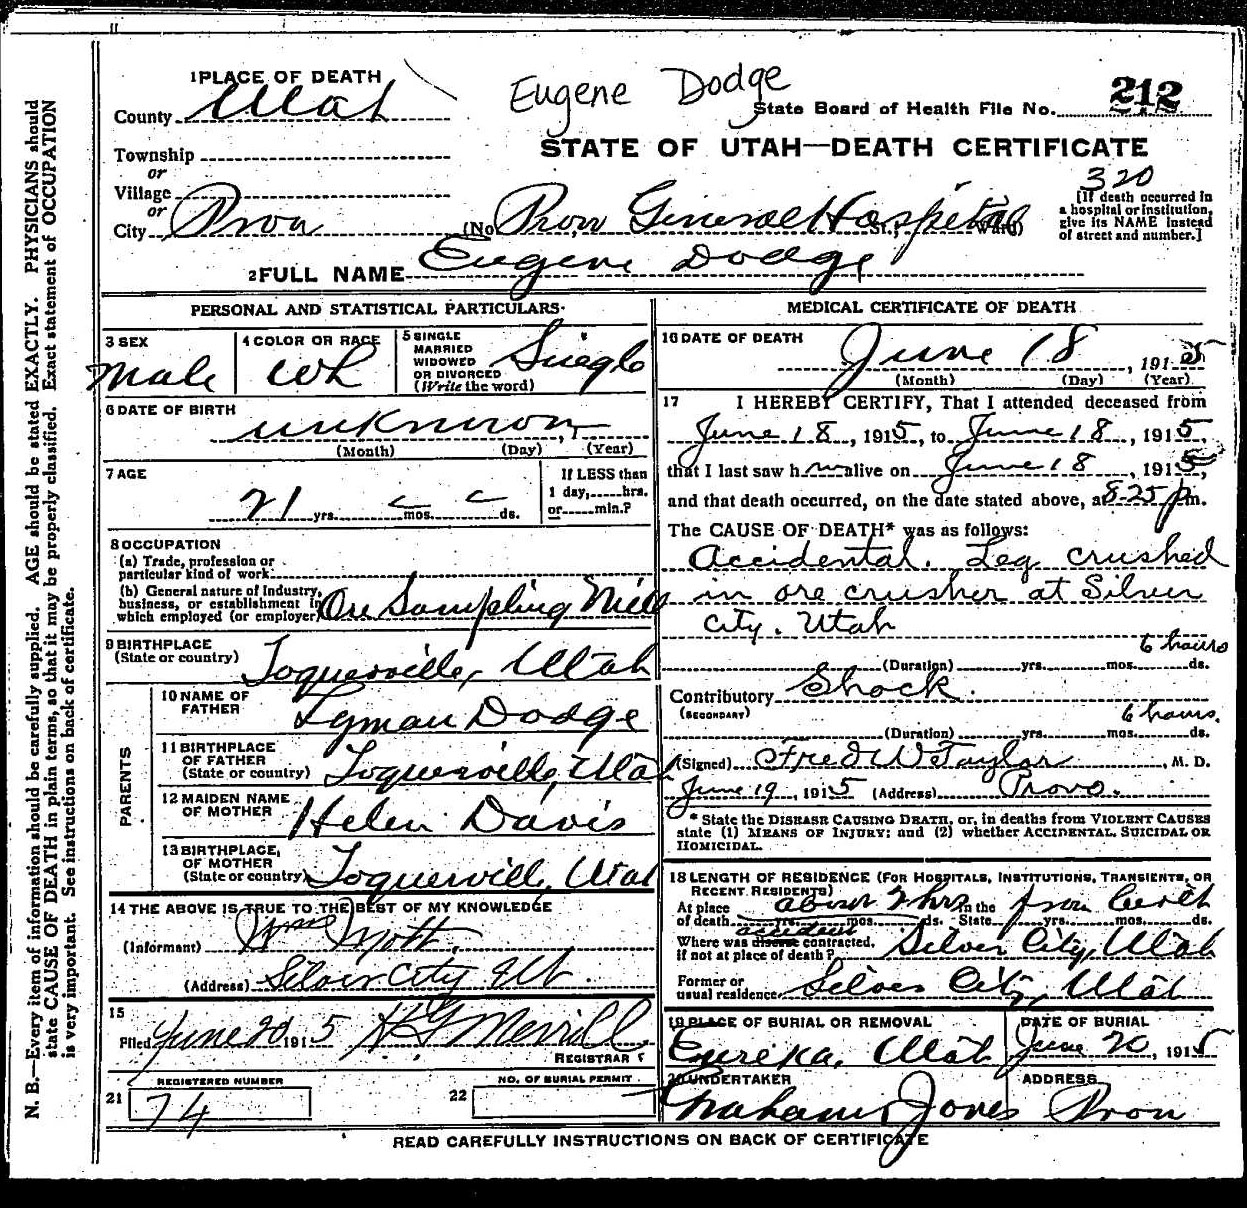 1 PLACE OF DEATH
Eugene Dodge
County Utah
State Board of Health File No. 212
Township
STATE OF UTAH—DEATH CERTIFICATE
or
Village
or
320
City Provo (No. Provo General Hospital St., Ward)
[If death occurred in a hospital or institution, give its NAME instead of street and number.]
2 FULL NAME Eugene Dodge
PERSONAL AND STATISTICAL PARTICULARS
3 SEX
Male
4 COLOR OR RACE
Wh
5 SINGLE
MARRIED
WIDOWED
OR DIVORCED
(Write the word)
Single
6 DATE OF BIRTH
unknown
(Month) (Day) (Year)
7 AGE
21 yrs. mos. ds.
If LESS than
1 day, hrs.
or min.?
8 OCCUPATION
(a) Trade, profession or
particular kind of work
(b) General nature of Industry,
business, or establishment in
which employed (or employer) Ore Sampling Mill
9 BIRTHPLACE
(State or country) Toquerville, Utah
PARENTS
10 NAME OF
FATHER Lyman Dodge
11 BIRTHPLACE
OF FATHER
(State or country) Toquerville, Utah
12 MAIDEN NAME
OF MOTHER Helen Davis
13 BIRTHPLACE
OF MOTHER
(State or country) Toquerville, Utah
14 THE ABOVE IS TRUE TO THE BEST OF MY KNOWLEDGE
(Informant) Wm Mott
(Address) Silver City Ut
15
Filed June 20 1915 Merrill
REGISTRAR
REGISTERED NUMBER
21 74
NO. OF BURIAL PERMIT
22
MEDICAL CERTIFICATE OF DEATH
16 DATE OF DEATH
June 18, 1915
(Month) (Day) (Year)
17 I HEREBY CERTIFY, That I attended deceased from
June 18, 1915, to June 18, 1915,
that I last saw him alive on June 18, 1915,
and that death occurred, on the date stated above, at 8-25 pm.
The CAUSE OF DEATH* was as follows:
Accidental. Leg crushed
in ore crusher at Silver
City. Utah
6 hours
(Duration) yrs. mos. ds.
Contributory Shock.
(SECONDARY)
6 hours.
(Duration) yrs. mos. ds.
(Signed) Fred W Taylor, M. D.
June 19, 1915 (Address) Provo.
* State the DISEASE CAUSING DEATH, or, in deaths from VIOLENT CAUSES
state (1) MEANS OF INJURY; and (2) whether ACCIDENTAL, SUICIDAL OR
HOMICIDAL.
18 LENGTH OF RESIDENCE (FOR HOSPITALS, INSTITUTIONS, TRANSIENTS, OR
RECENT RESIDENTS)
At place about 2 hrs In the from birth
of death yrs. mos. ds. State yrs. mos. ds.
accident
Where was disease contracted,
if not at place of death? Silver City, Utah
Former or
usual residence Silver City, Utah
19 PLACE OF BURIAL OR REMOVAL
Eureka, Utah
DATE OF BURIAL
June 20, 1915
20 UNDERTAKER
Graham Jones
ADDRESS
Provo
READ CAREFULLY INSTRUCTIONS ON BACK OF CERTIFICATE
N. B.—Every item of information should be carefully supplied. AGE should be stated EXACTLY. PHYSICIANS should
state CAUSE OF DEATH in plain terms, so that it may be properly classified. Exact statement of OCCUPATION
is very important. See instructions on back of certificate.